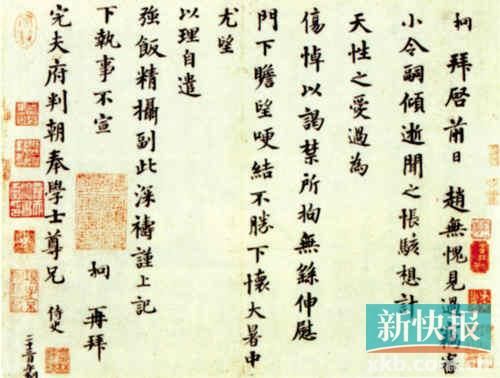 拜啓前日趙無愧見過竊
小令嗣傾逝聞之悵駭想計
天性之愛過為
傷悼以謁禁所拘無繇伸慰
門下瞻望哽結不勝下懷大暑中
尤望
以理自遣
強飯精攝副此深禱謹上記
下執事不宣
再拜
完夫府判朝奉學士尊兄
侍史
新快报
xkb.com.cn